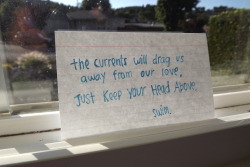 the currents will drag us
away from our love,
Just Keep Your Head Above.
swim.